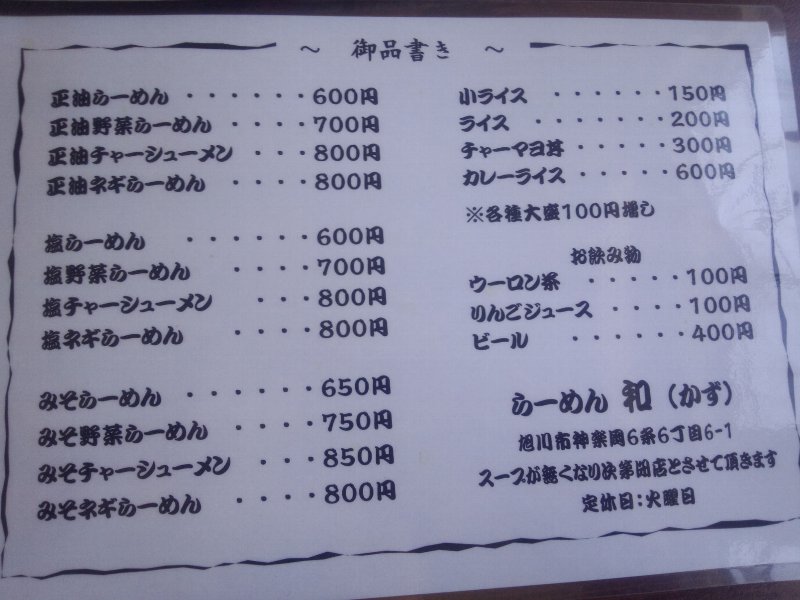 ～ 御品書き ～
正油らーめん ・・・・・・600円
正油野菜らーめん ・・・・700円
正油チャーシューメン ・・・800円
正油ネギらーめん ・・・・800円
塩らーめん ・・・・・・600円
塩野菜らーめん ・・・・700円
塩チャーシューメン ・・・800円
塩ネギらーめん ・・・・800円
みそらーめん ・・・・・・650円
みそ野菜らーめん ・・・・750円
みそチャーシューメン ・・・850円
みそネギらーめん ・・・・800円
小ライス ・・・・・・150円
ライス ・・・・・・・200円
チャーマヨ丼 ・・・・・300円
カレーライス ・・・・・600円
※各種大盛100円増し
お飲み物
ウーロン茶 ・・・・・100円
りんごジュース ・・・・100円
ビール ・・・・・・400円
らーめん 和（かず）
旭川市神楽岡6条6丁目6-1
スープが無くなり次第閉店とさせて頂きます
定休日：火曜日